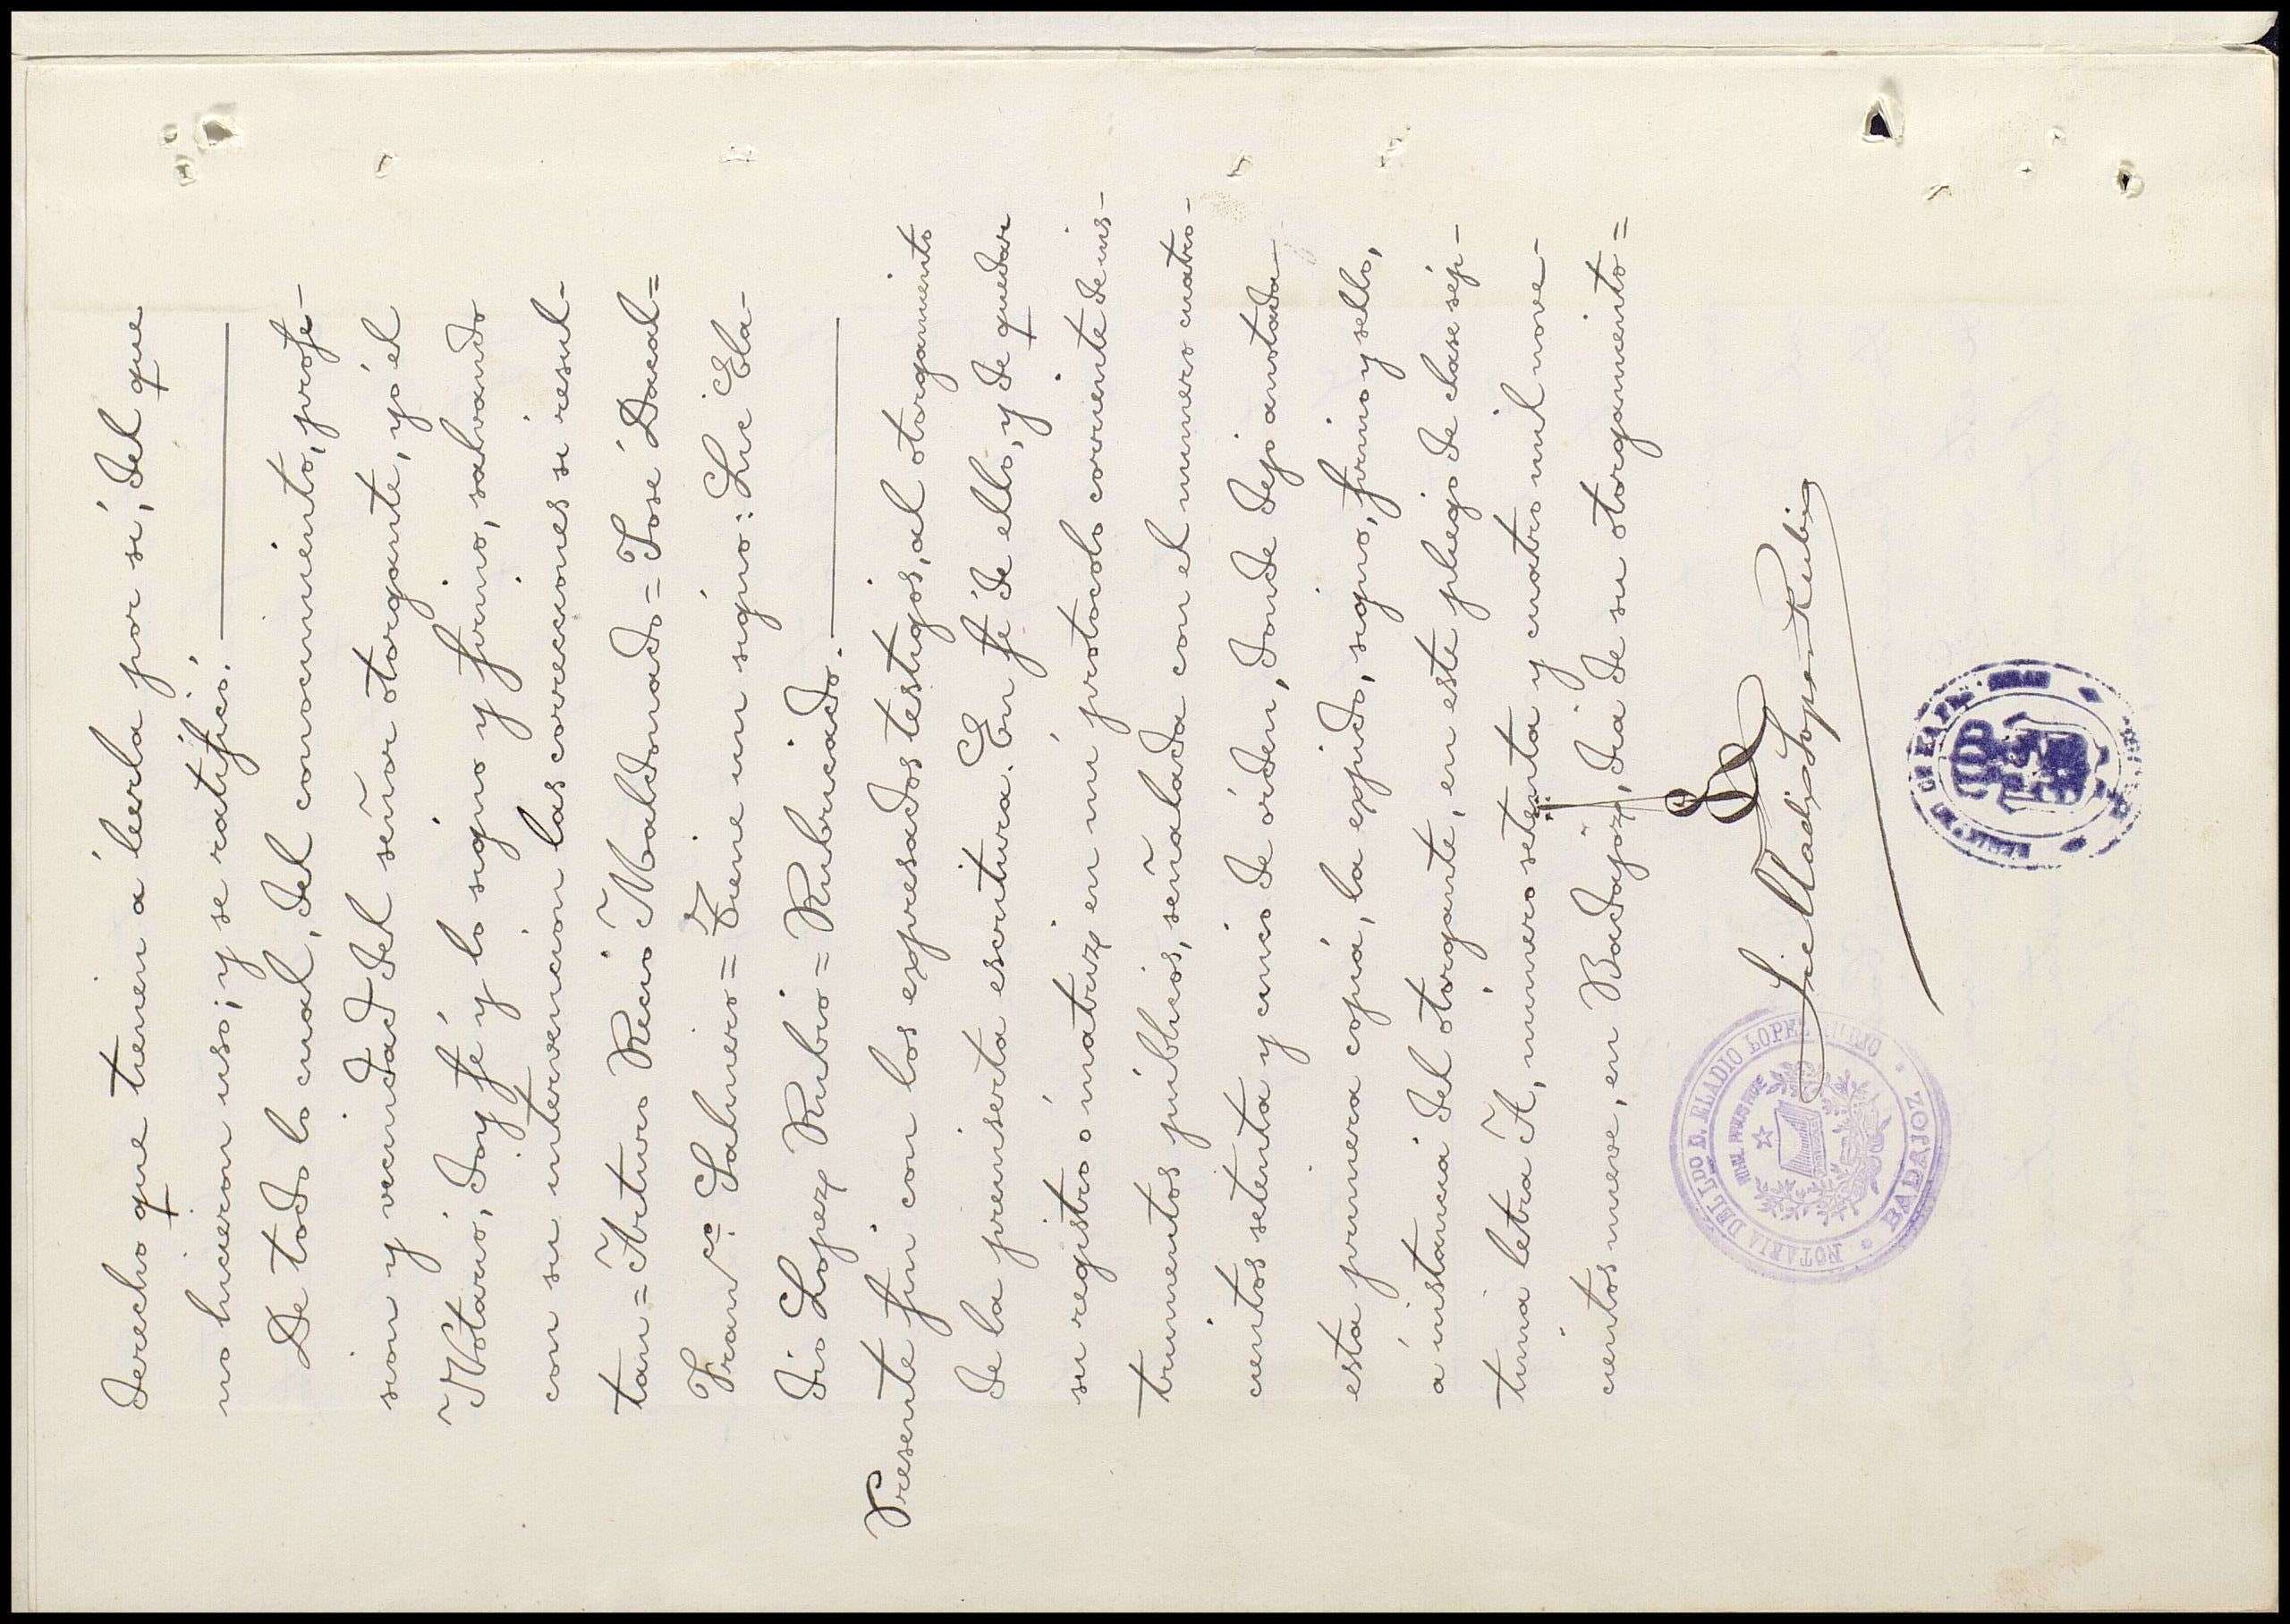 derecho que tienen á leerla por sí, del que
no hicieron uso; y se ratificó.
De todo lo cual, del conocimiento, profe-
sion y vecindad del señor otorgante, yó el
Notario, doy fé y lo signo y firmo, salvando
con su intervencion las correcciones si resul-
tan = Arturo Recio Maldonado = José Dacal =
Franco. Salnero = Tiene un signo: Lic Ela-
dio Lopez Rubio = Rubricado.
Presente fui con los expresados testigos, al otorgamiento
de la preinserta escritura. En fé de ello, y de quedar
su registro ó matriz en mi protocolo corriente de ins-
trumentos públicos, señalada con el numero cuatro-
cientos setenta y cinco de órden, donde dejo anotada
esta primera copia, la expido, signo, firmo y sello,
á instancia del otorgante, en este pliego de clase sép-
tima letra A, número setenta y cuatro mil nove-
cientos nueve, en Badajoz, dia de su otorgamiento =
Lic Eladio Lopez Rubio
NOTARIA DEL LDO D. ELADIO LOPEZ RUBIO
NIHIL PRIUS FIDE
BADAJOZ